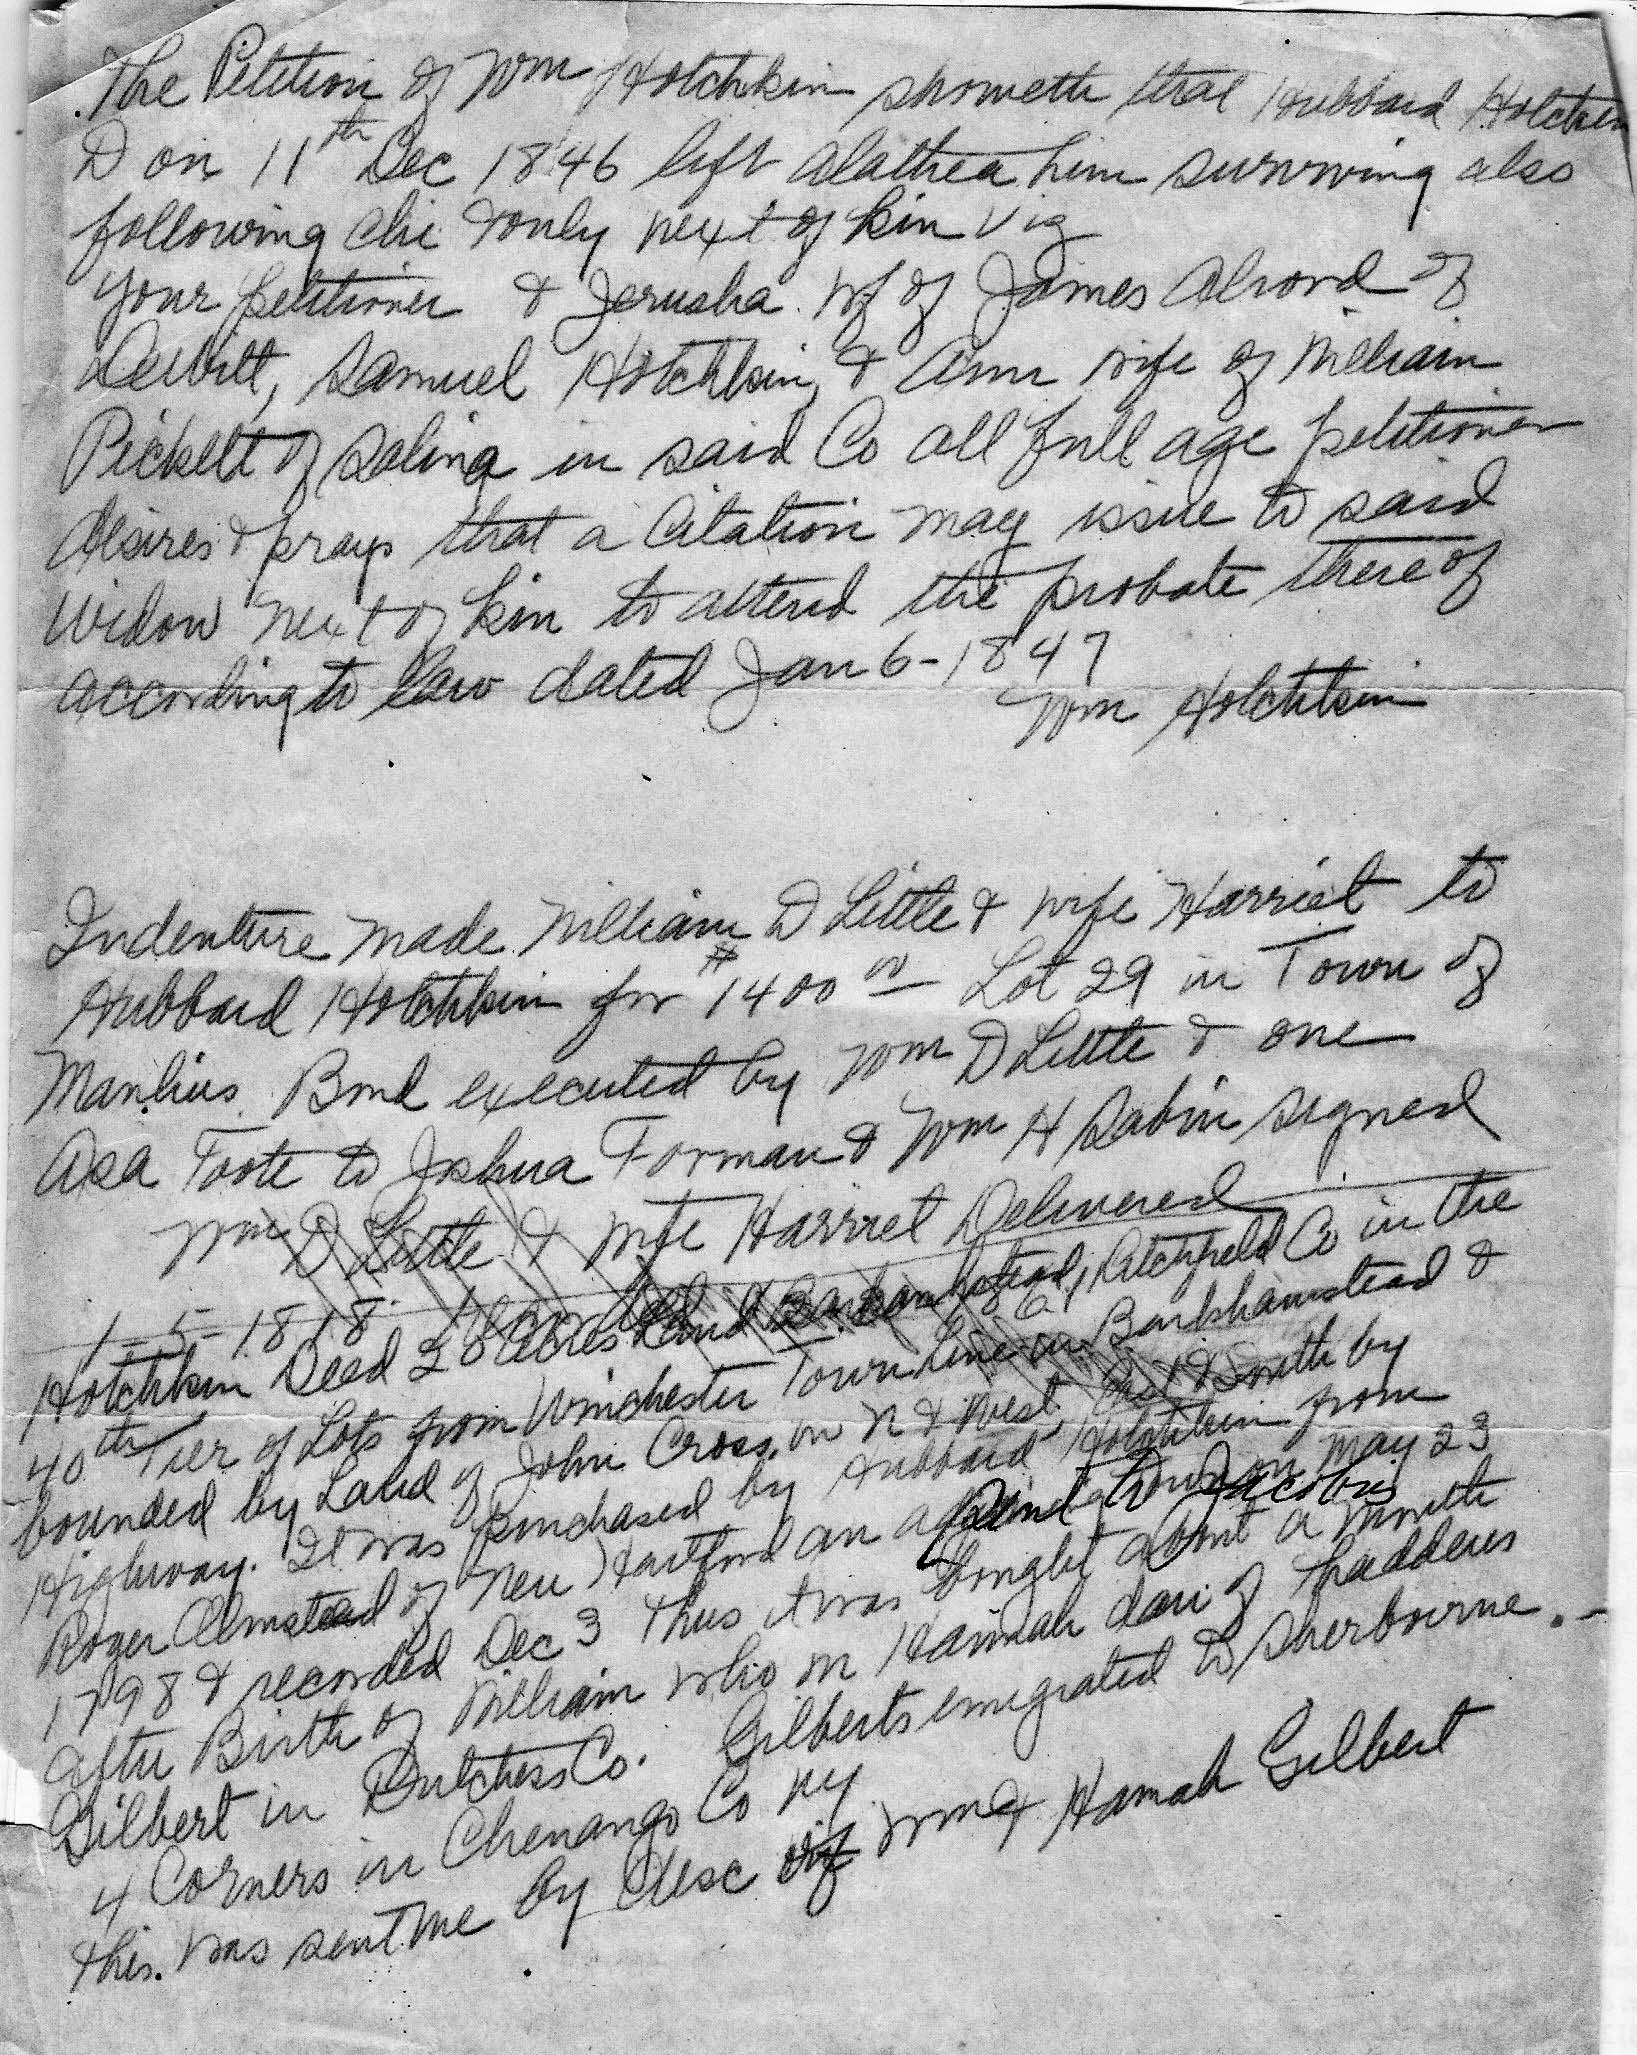 The Petition of Wm Hotchkin showeth that Hubbard Hotchkin
D on 11th Dec 1846 left Alathea him surviving also
following chi & only next of kin viz
your petitioner & Jerusha wf of James Alvord of
Dewitt, Samuel Hotchkin, & Ann wife of William
Pickett of Salina in said Co all full age petitioner
desires & prays that a Citation may issue to said
widow next of kin to attend the probate there of
according to law dated Jan 6 - 1847
Wm Hotchkin
Indenture made William D Little & wife Harriet to
Hubbard Hotchkin for $1400 00 Lot 29 in Town of
Manlius. Bond executed by Wm D Little & one
Asa Foote to Joshua Forman & Wm H Sabin signed
Wm D Little & wife Harriet Delivered
1 - 5 - 1818
Hotchkin Deed 20 acres Land Barkhamstead, Litchfield Co in the
40th Tier of Lots from Winchester Town Line in Barkhamstead &
bounded by Land of John Cross, on N & West, East & South by
Highway. It was purchased by Hubbard Hotchkin from
Roger Olmstead of New Hartford an adjoining Town on May 23
Send to Jacobus
1798 & recorded Dec 3 Thus it was bought about a month
after Birth of William who m Hannah dau of Thaddeus
Gilbert in Dutchess Co. Gilberts emigrated to Sherbourne
4 Corners in Chenango Co NY
this. was sent me by desc of Wm & Hannah Gilbert